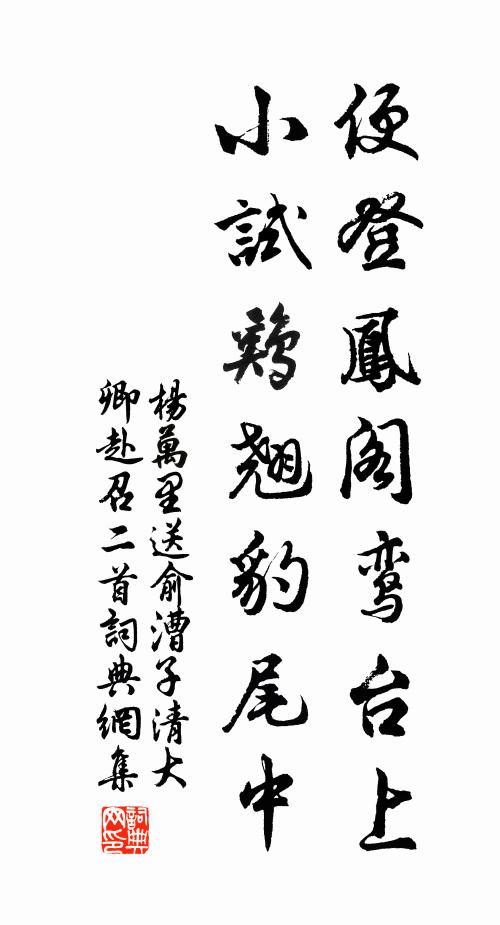 便登鳳阁鸾台上
小試鷄翘豹尾中
楊萬里送俞漕子清大
卿赴召二首詞典網集
詞典
网印